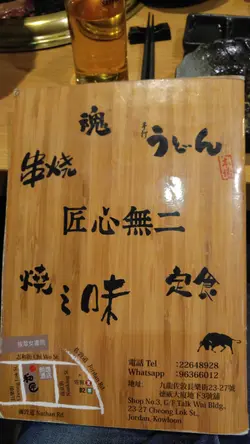 魂
手打 うどん
本気
串燒
匠心無二
燒
之味
定食
電話 Tel :22648928
Whatsapp :96366012
地址: 九龍佐敦長樂街23-27號
德威大廈地下3號舖
Shop No.3, G/F Talk Wai Bldg.
23-27 Cheong Lok St.
Jordan, Kowloon
吉和街 Chi Wo St
和邑
B2
彌敦道 Nathan Rd